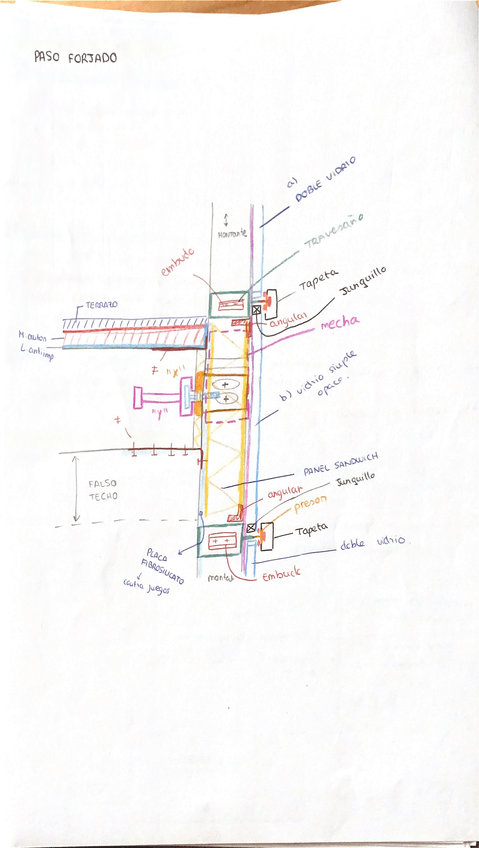 PASO FORJADO
a)
DOBLE VIDRIO
MONTANTE
Travesaño
embudo
Tapeta
Junquillo
TERRAZO
angular
mecha
M. auton
L antiimp
≠ "x"
b) vidrio simple
opaco.
"y"
≠
PANEL SANDWICH
FALSO
TECHO
angular
Junquillo
preson
Tapeta
PLACA
FIBROSILICATO
contra juegos
doble vidrio.
montas
Embuck